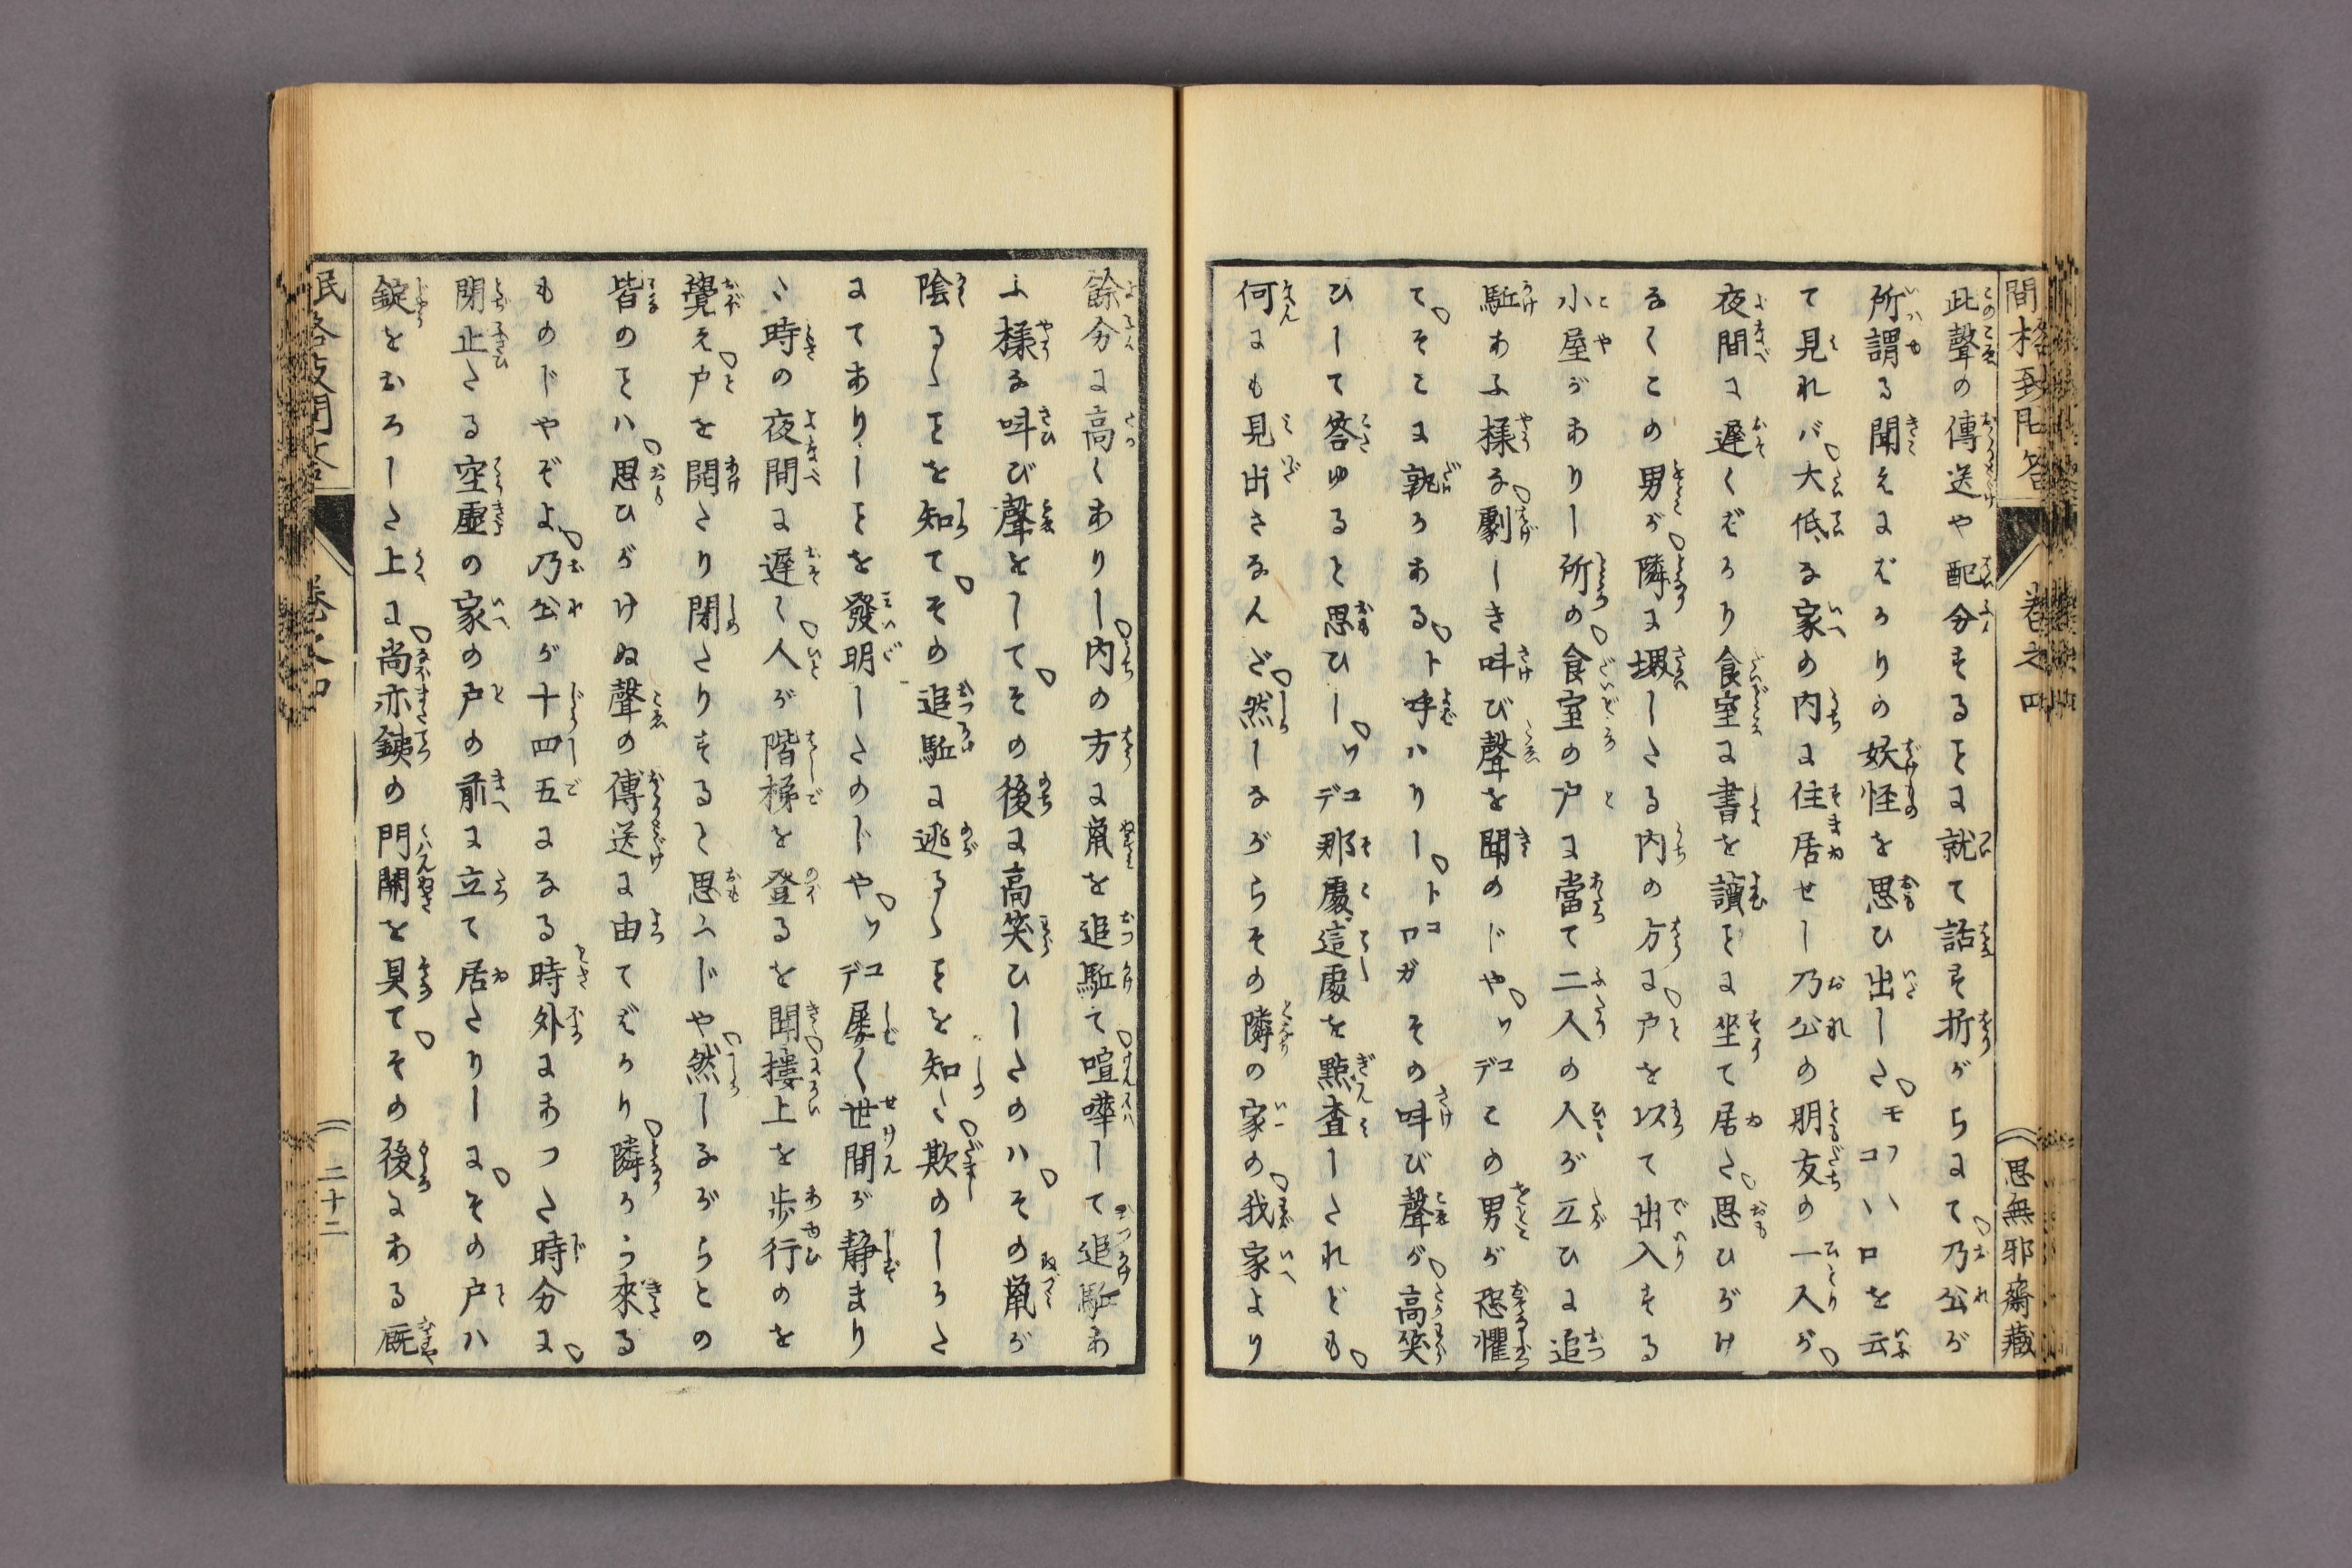 民格致問答
巻之四
思無邪齋藏
此聲の傳送や配分するヿに就て話す折がらにて乃公が
所謂る聞えにばかりの妖怪を思ひ出した
て見れバ大低な家の内に住居せし乃公の朋友の一人が
夜間に遅くばかり食室に書を讀ヿに坐て居た思ひがけ
なくこの男が隣に堺したる内の方に戸を以て出入する
小屋がありし所の食室の戸に當て二人の人が互ひに追
駈あふ様な劇しき呌び聲を聞のじやソコデこの男が恐懼
てそこに孰かあるト呼ハりしトコロガその呌び聲が高笑
ひして答ゆると思ひしソコデ那處這處を點査したれども
何にも見出さなんだ然しながらその隣の家の我家より
餘分に高くありし内の方に鼠を追駈て喧嘩して追駈あ
ふ様な呌び聲をしてその後に高笑ひしたのハその鼠が
陰るゝヿを知てその追駈に逃るゝヿを知た欺のしかた
にてありしヿを發明したのじやソコデ屡く世間が静まり
た時の夜間に遅く人が階梯を登るを聞樓上を歩行のを
覺え戸を開たり閉たりすると思ふじや然しながらとの
皆のヿハ思ひがけぬ聲の傳送に由てばかり隣から來る
ものじやぞよ乃公が十四五になる時外にあつた時分に
閉止たる空虚の家の戸の前に立て居たりしにその戸ハ
錠をおろした上に尚亦銕の門關を具てその後にある厩
民格致問答
巻之四
二十二